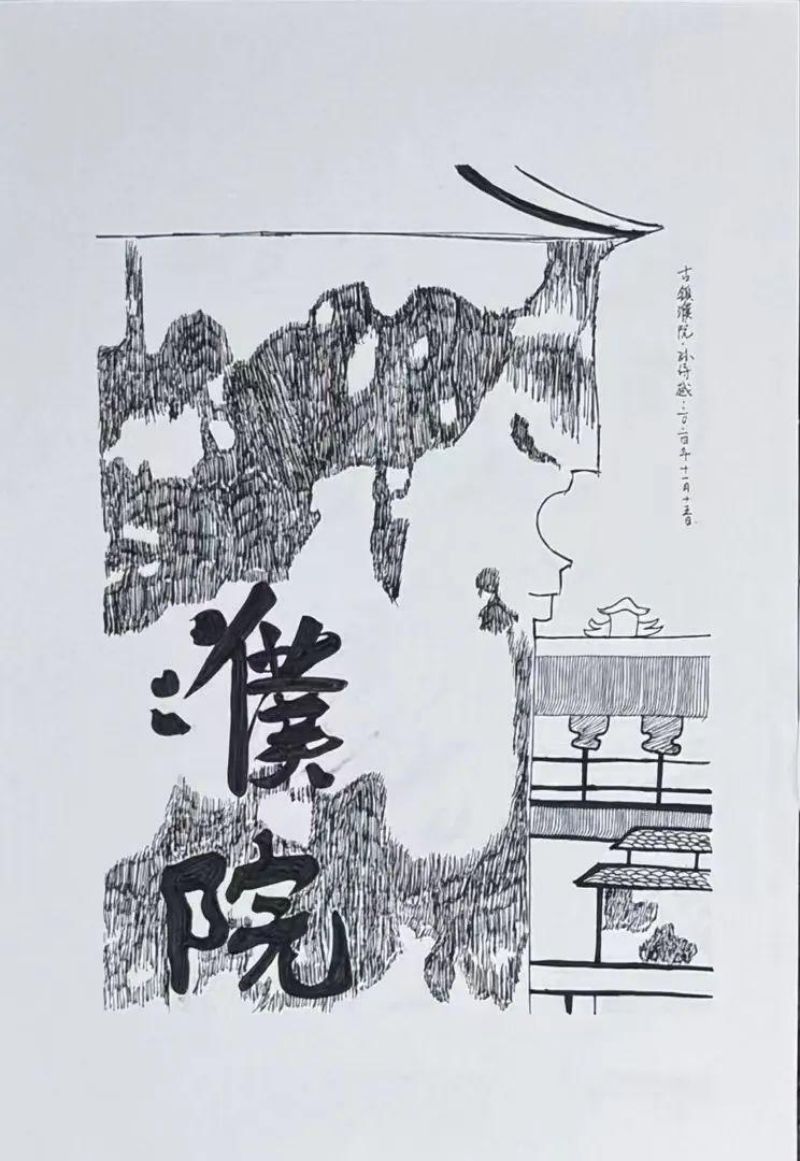 古镇濮院·孙伟越·二〇二〇年十一月十五日
濮院